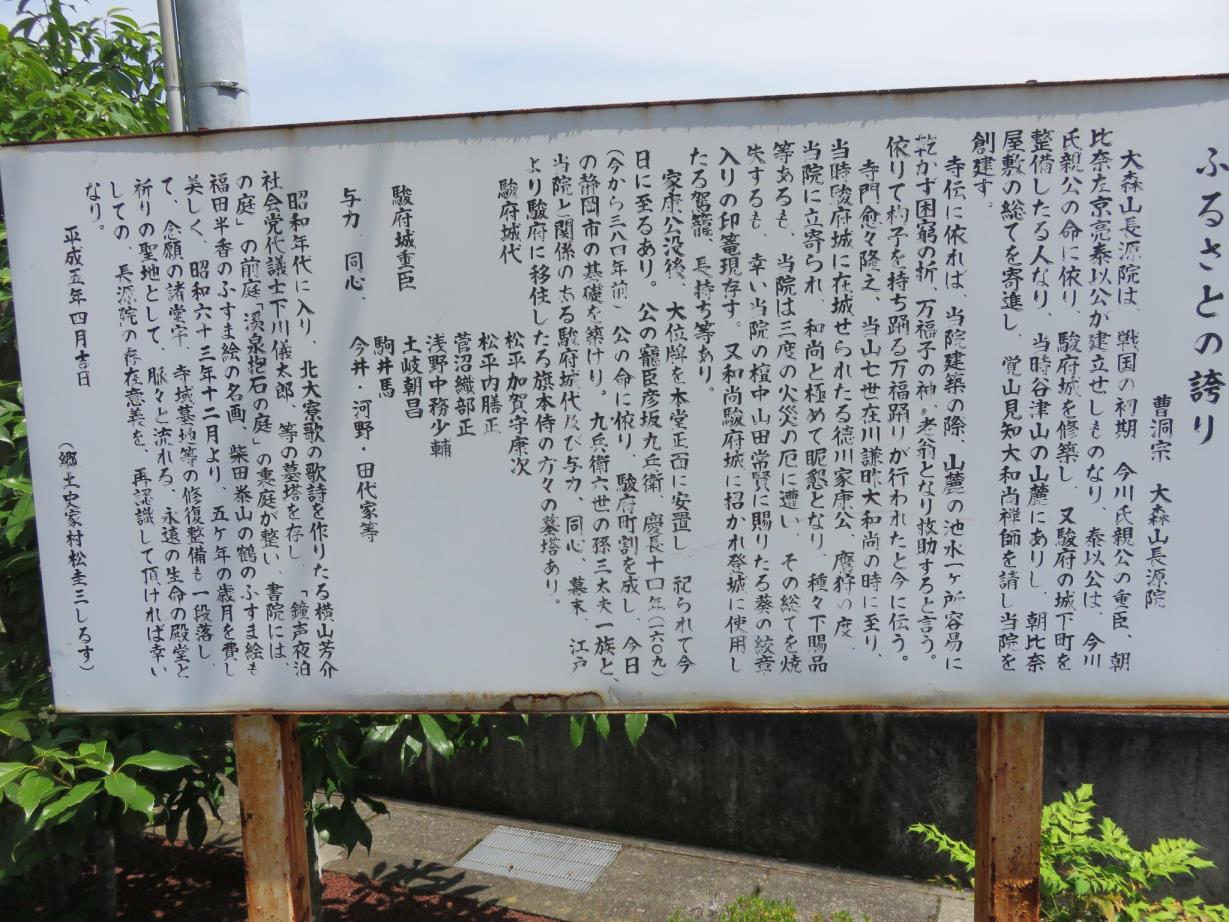 ふるさとの誇り
曹洞宗 大森山長源院
大森山長源院は、戦国の初期 今川氏親公の重臣、朝
比奈左京亮泰以公が建立せしものなり、泰以公は、今川
氏親公の命に依り、駿府城を修築し、又駿府の城下町を
整備したる人なり、当時谷津山の山麓にありし、朝比奈
屋敷の総てを寄進し、覚山見知大和尚禅師を請し当院を
創建す。
寺伝に依れば、当院建築の際、山麓の池水一ヶ所容易に
乾かず困窮の折、万福子の神、老翁となり救助すると言う。
依りて杓子を持ち踊る万福踊りが行われたと今に伝う。
寺門愈々隆え、当山七世在川謙昨大和尚の時に至り、
当時駿府城に在城せられたる徳川家康公、鷹狩の度、
当院に立寄られ、和尚と極めて昵懇となり、種々下賜品
等あるも、当院は三度の火災の厄に遭い、その総てを焼
失するも、幸い当院の檀中山田常賢に賜りたる葵の紋章
入りの印篭現存す。又和尚駿府城に招かれ登城に使用し
たる駕籠、長持ち等あり。
家康公没後、大位牌を本堂正面に安置し 祀られて今
日に至るあり。公の寵臣彦坂九兵衛、慶長十四年(一六〇九)
(今から三八四年前) 公の命に依り、駿府町割を成し、今日
の静岡市の基礎を築けり。九兵衛六世の孫三太夫一族と、
当院と関係のある駿府城代及び与力、同心、幕末、江戸
より駿府に移住したる旗本侍の方々の墓塔あり。
駿府城代 松平加賀守康次
松平内膳正
菅沼織部正
浅野中務少輔
駿府城重臣 土岐朝昌
駒井馬
与力 同心、 今井・河野・田代家等
昭和年代に入り、北大寮歌の歌詩を作りたる横山芳介
社会党代議士下川儀太郎、等の墓塔を存し、「鐘声夜泊
の庭」の前庭、「溪泉抱石の庭」の裏庭が整い、書院には、
福田半香のふすま絵の名画、柴田泰山の鶴のふすま絵も
美しく、昭和六十三年十二月より、五ヶ年の歳月を費し
て、念願の諸堂宇、寺域墓地等の修復整備も一段落し、
祈りの聖地として、脈々と流れる、永遠の生命の殿堂と
しての、長源院の存在意義を、再認識して頂ければ幸い
なり。
平成五年四月吉日 (郷土史家村松圭三しるす)